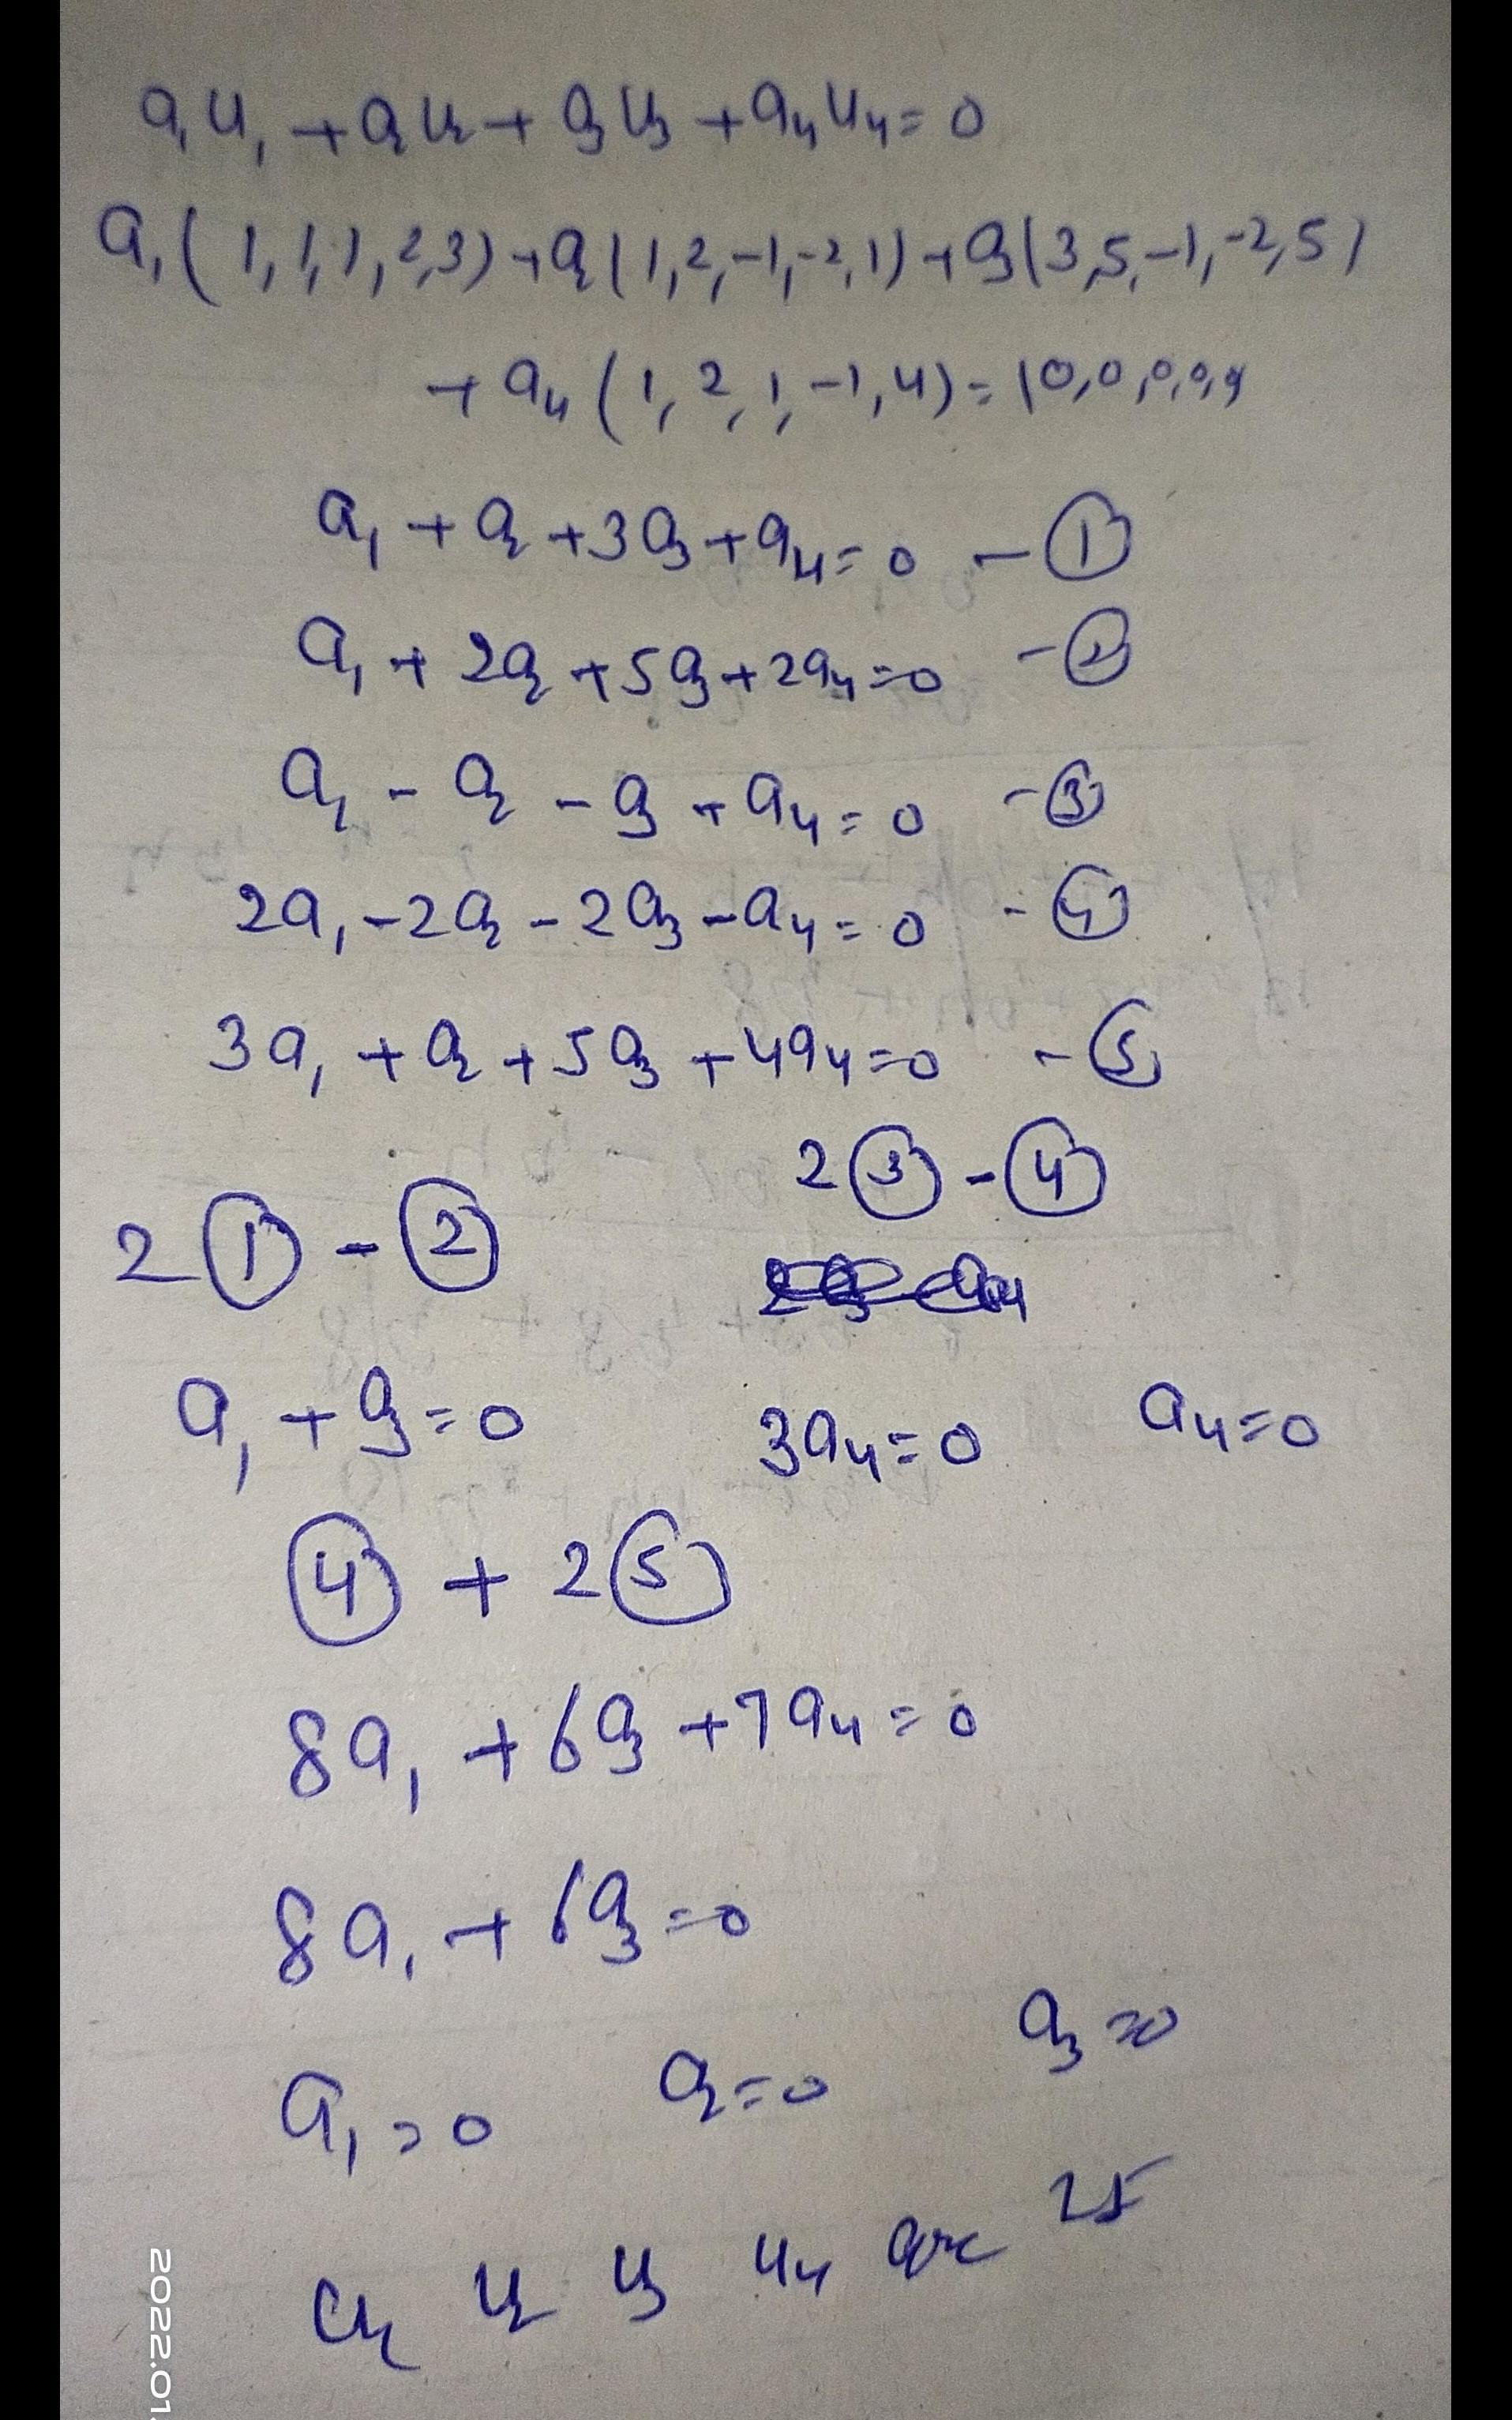 a₁u₁ + a₂u₂ + a₃u₃ + a₄u₄ = 0
a₁(1,1,1,2,3) + a₂(1,2,-1,-2,1) + a₃(3,5,-1,-2,5)
+ a₄(1,2,1,-1,4) = (0,0,0,0,0)
a₁ + a₂ + 3a₃ + a₄ = 0 - ①
a₁ + 2a₂ + 5a₃ + 2a₄ = 0 - ②
a₁ - a₂ - a₃ + a₄ = 0 - ③
2a₁ - 2a₂ - 2a₃ - a₄ = 0 - ④
3a₁ + a₂ + 5a₃ + 4a₄ = 0 - ⑤
2① - ② 2③ - ④
a₁ + a₃ = 0 3a₄ = 0 a₄ = 0
④ + 2⑤
8a₁ + 6a₃ + 7a₄ = 0
8a₁ + 6a₃ = 0
a₁ = 0 a₂ = 0 a₃ = 0
u₁ u₂ u₃ u₄ are
2022.01.